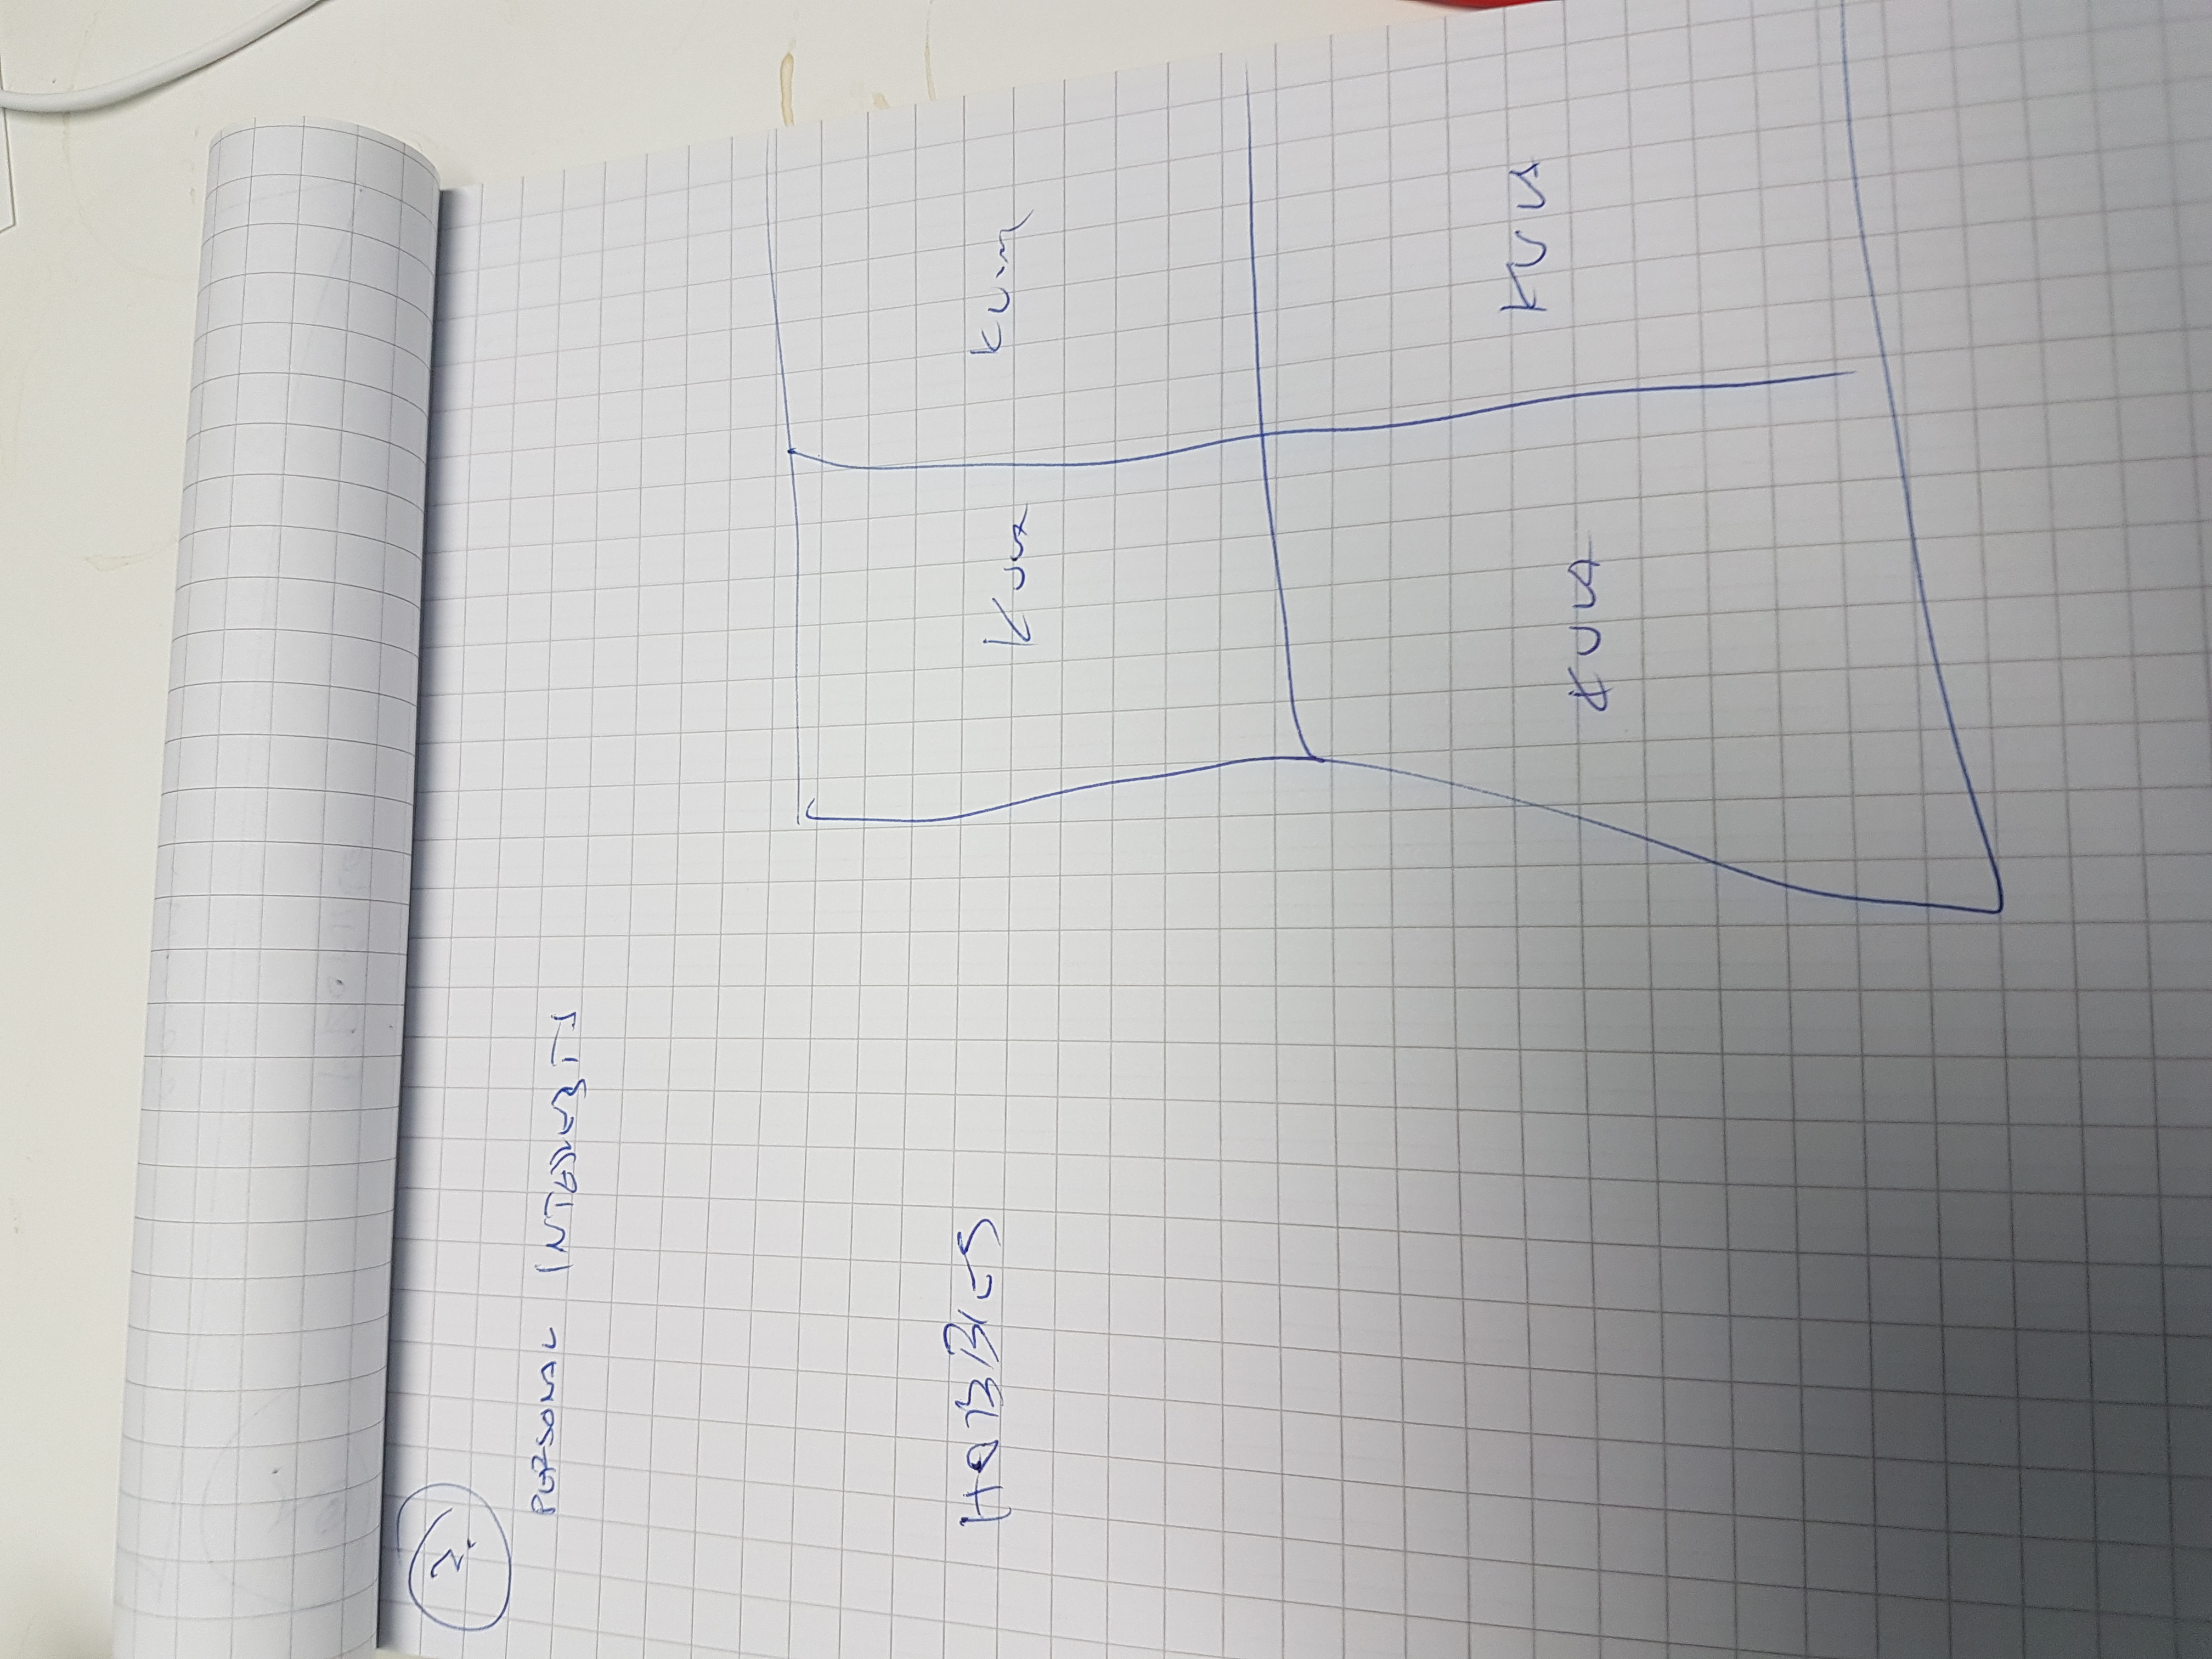 2.
PERSONAL INTERESTS
HOBBIES
KUVA KUVA
KUVA
KUVA